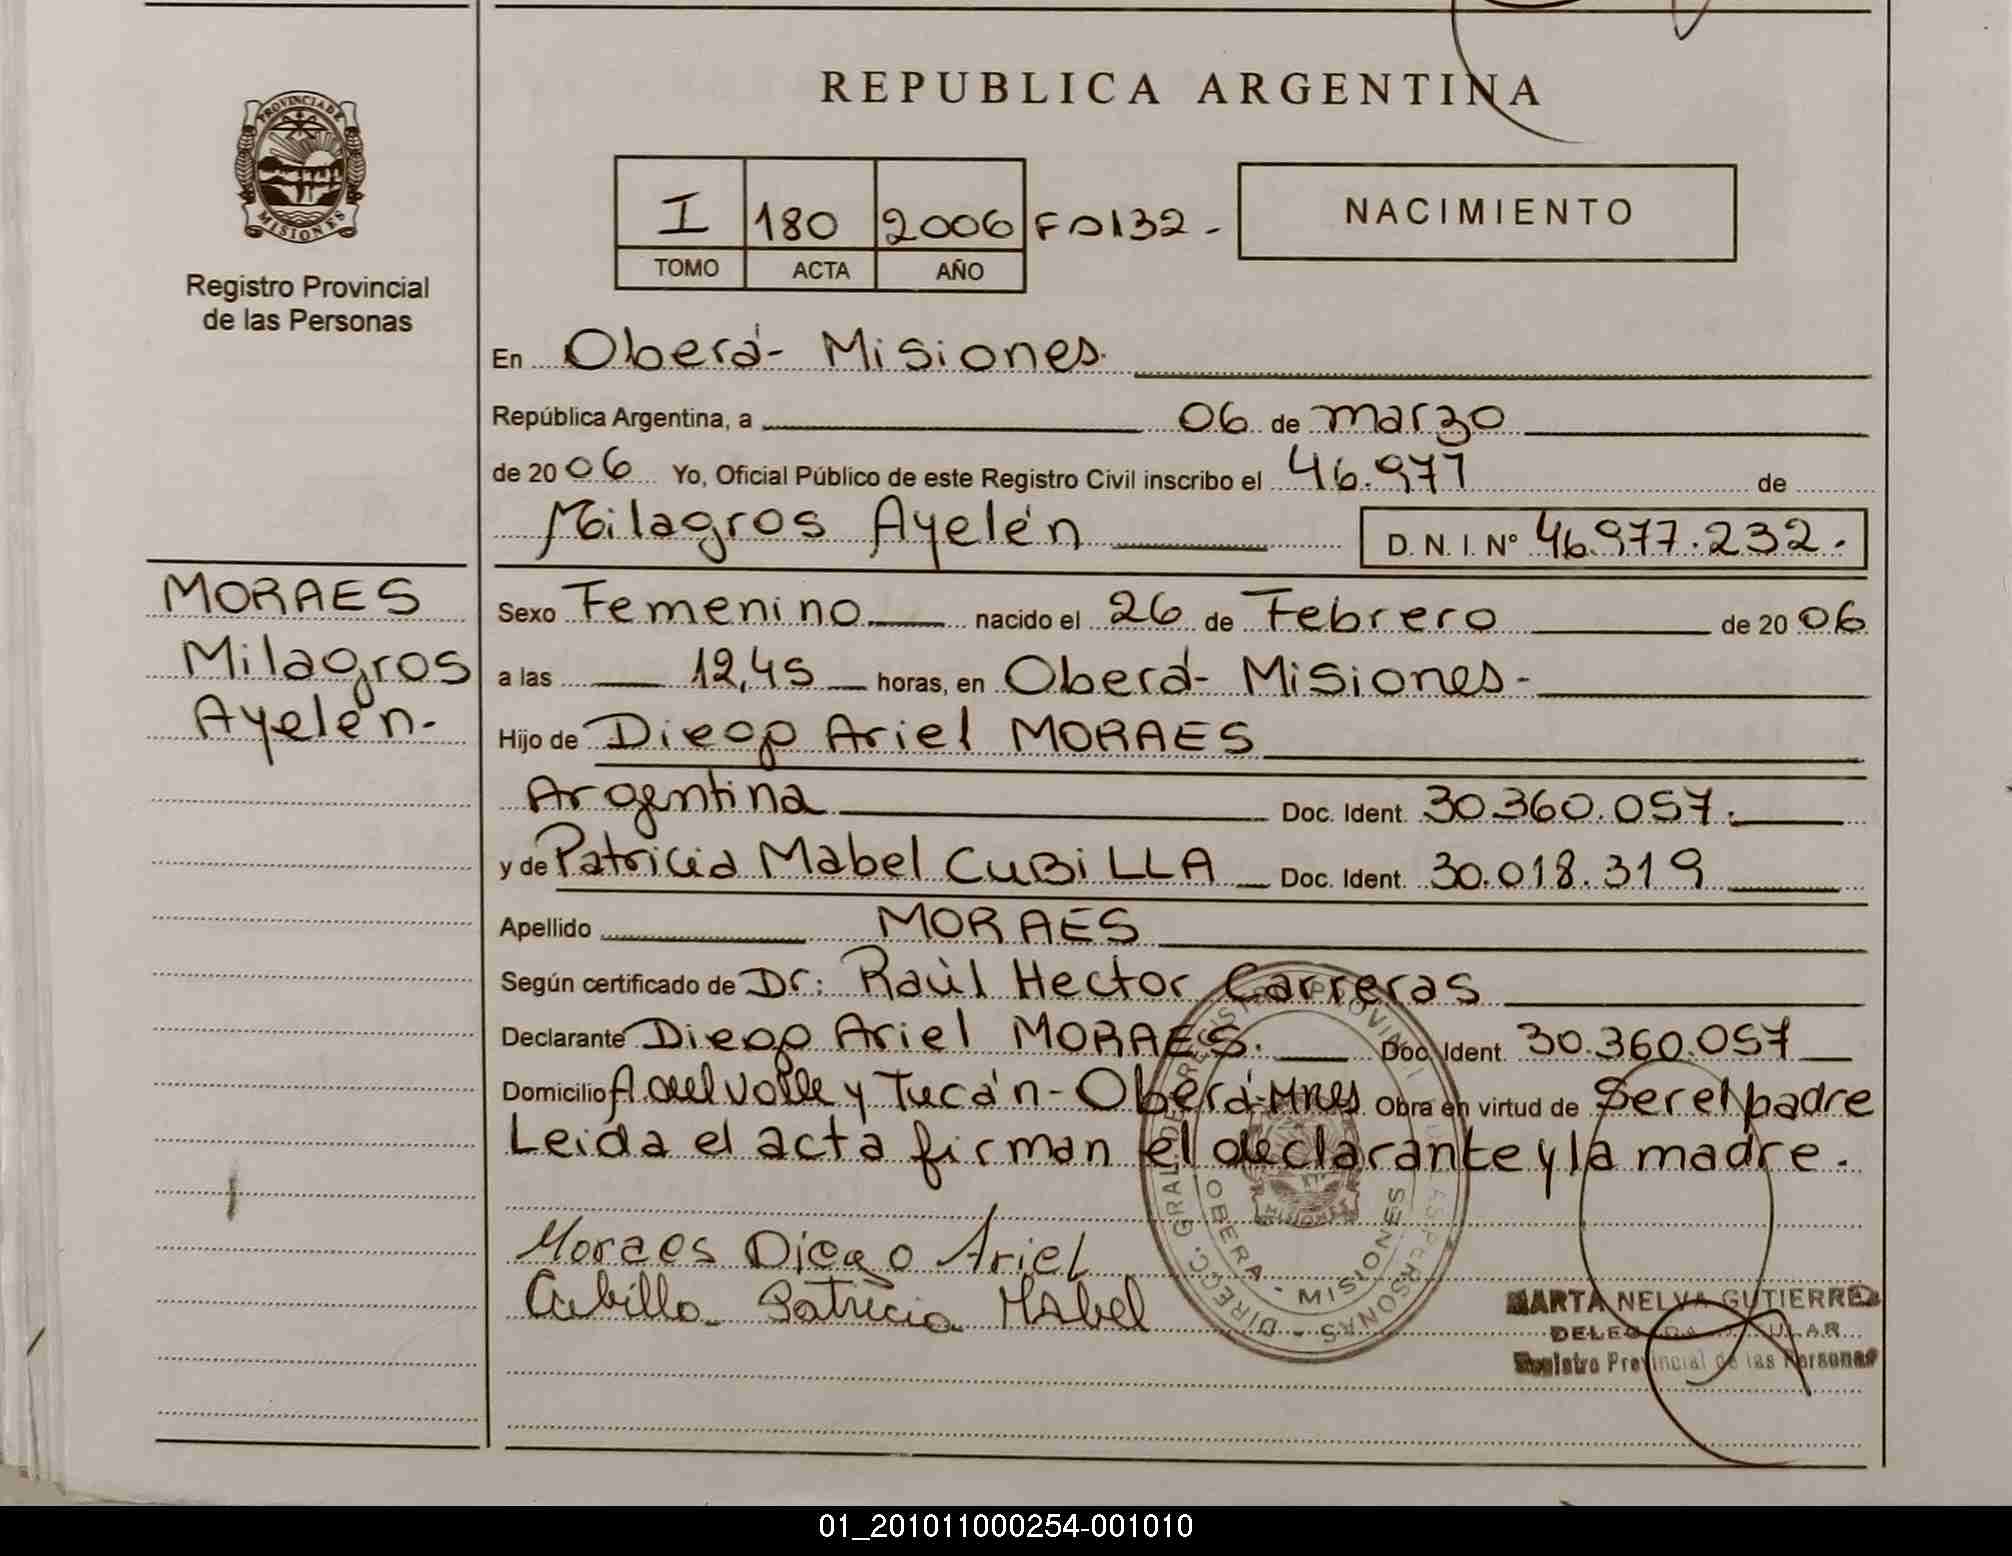 REPUBLICA ARGENTINA
PROVINCIA DE
MISIONES
Registro Provincial
de las Personas
I 180 2006 Fo132-
TOMO ACTA AÑO
NACIMIENTO
En Oberá- Misiones.
República Argentina, a 06 de marzo
de 20 06 Yo, Oficial Público de este Registro Civil inscribo el 46.977 de
Milagros Ayelén D. N. I. Nº 46.977.232.
MORAES
Milagros
Ayelén-
Sexo Femenino nacido el 26 de Febrero de 20 06
a las 12,45 horas, en Oberá- Misiones-
Hijo de Diego Ariel MORAES
Argentina Doc. Ident. 30.360.057.
y de Patricia Mabel CUBILLA Doc. Ident. 30.018.319
Apellido MORAES
Según certificado de Dr: Raúl Hector Carreras
Declarante Diego Ariel MORAES. Doc. Ident. 30.360.057
Domicilio y Tucán- Oberá-Mnes Obra en virtud de Ser el padre
Leida el acta firman el declarante y la madre.
Moraes Diego Ariel
Cubilla Patricia Mabel
DIRECC. GRAL. DE REGISTRO PROVINCIAL DE LAS PERSONAS
OBERA - MISIONES
MARTA NELVA GUTIERREZ
Registro Provincial de las Personas
01_201011000254-001010